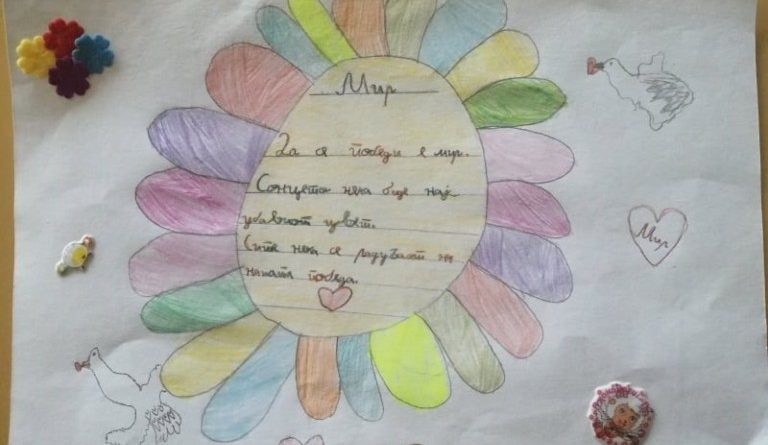 Мир
Да се победи е мир.
Сонцето нека биде нај-
убавиот цвет.
Сите нека се радуваат на
нашата победа.
Мир